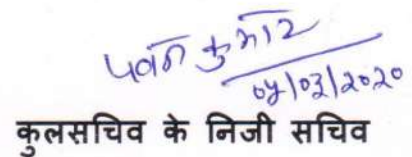 पवन कुमार
04/03/2020
कुलसचिव के निजी सचिव